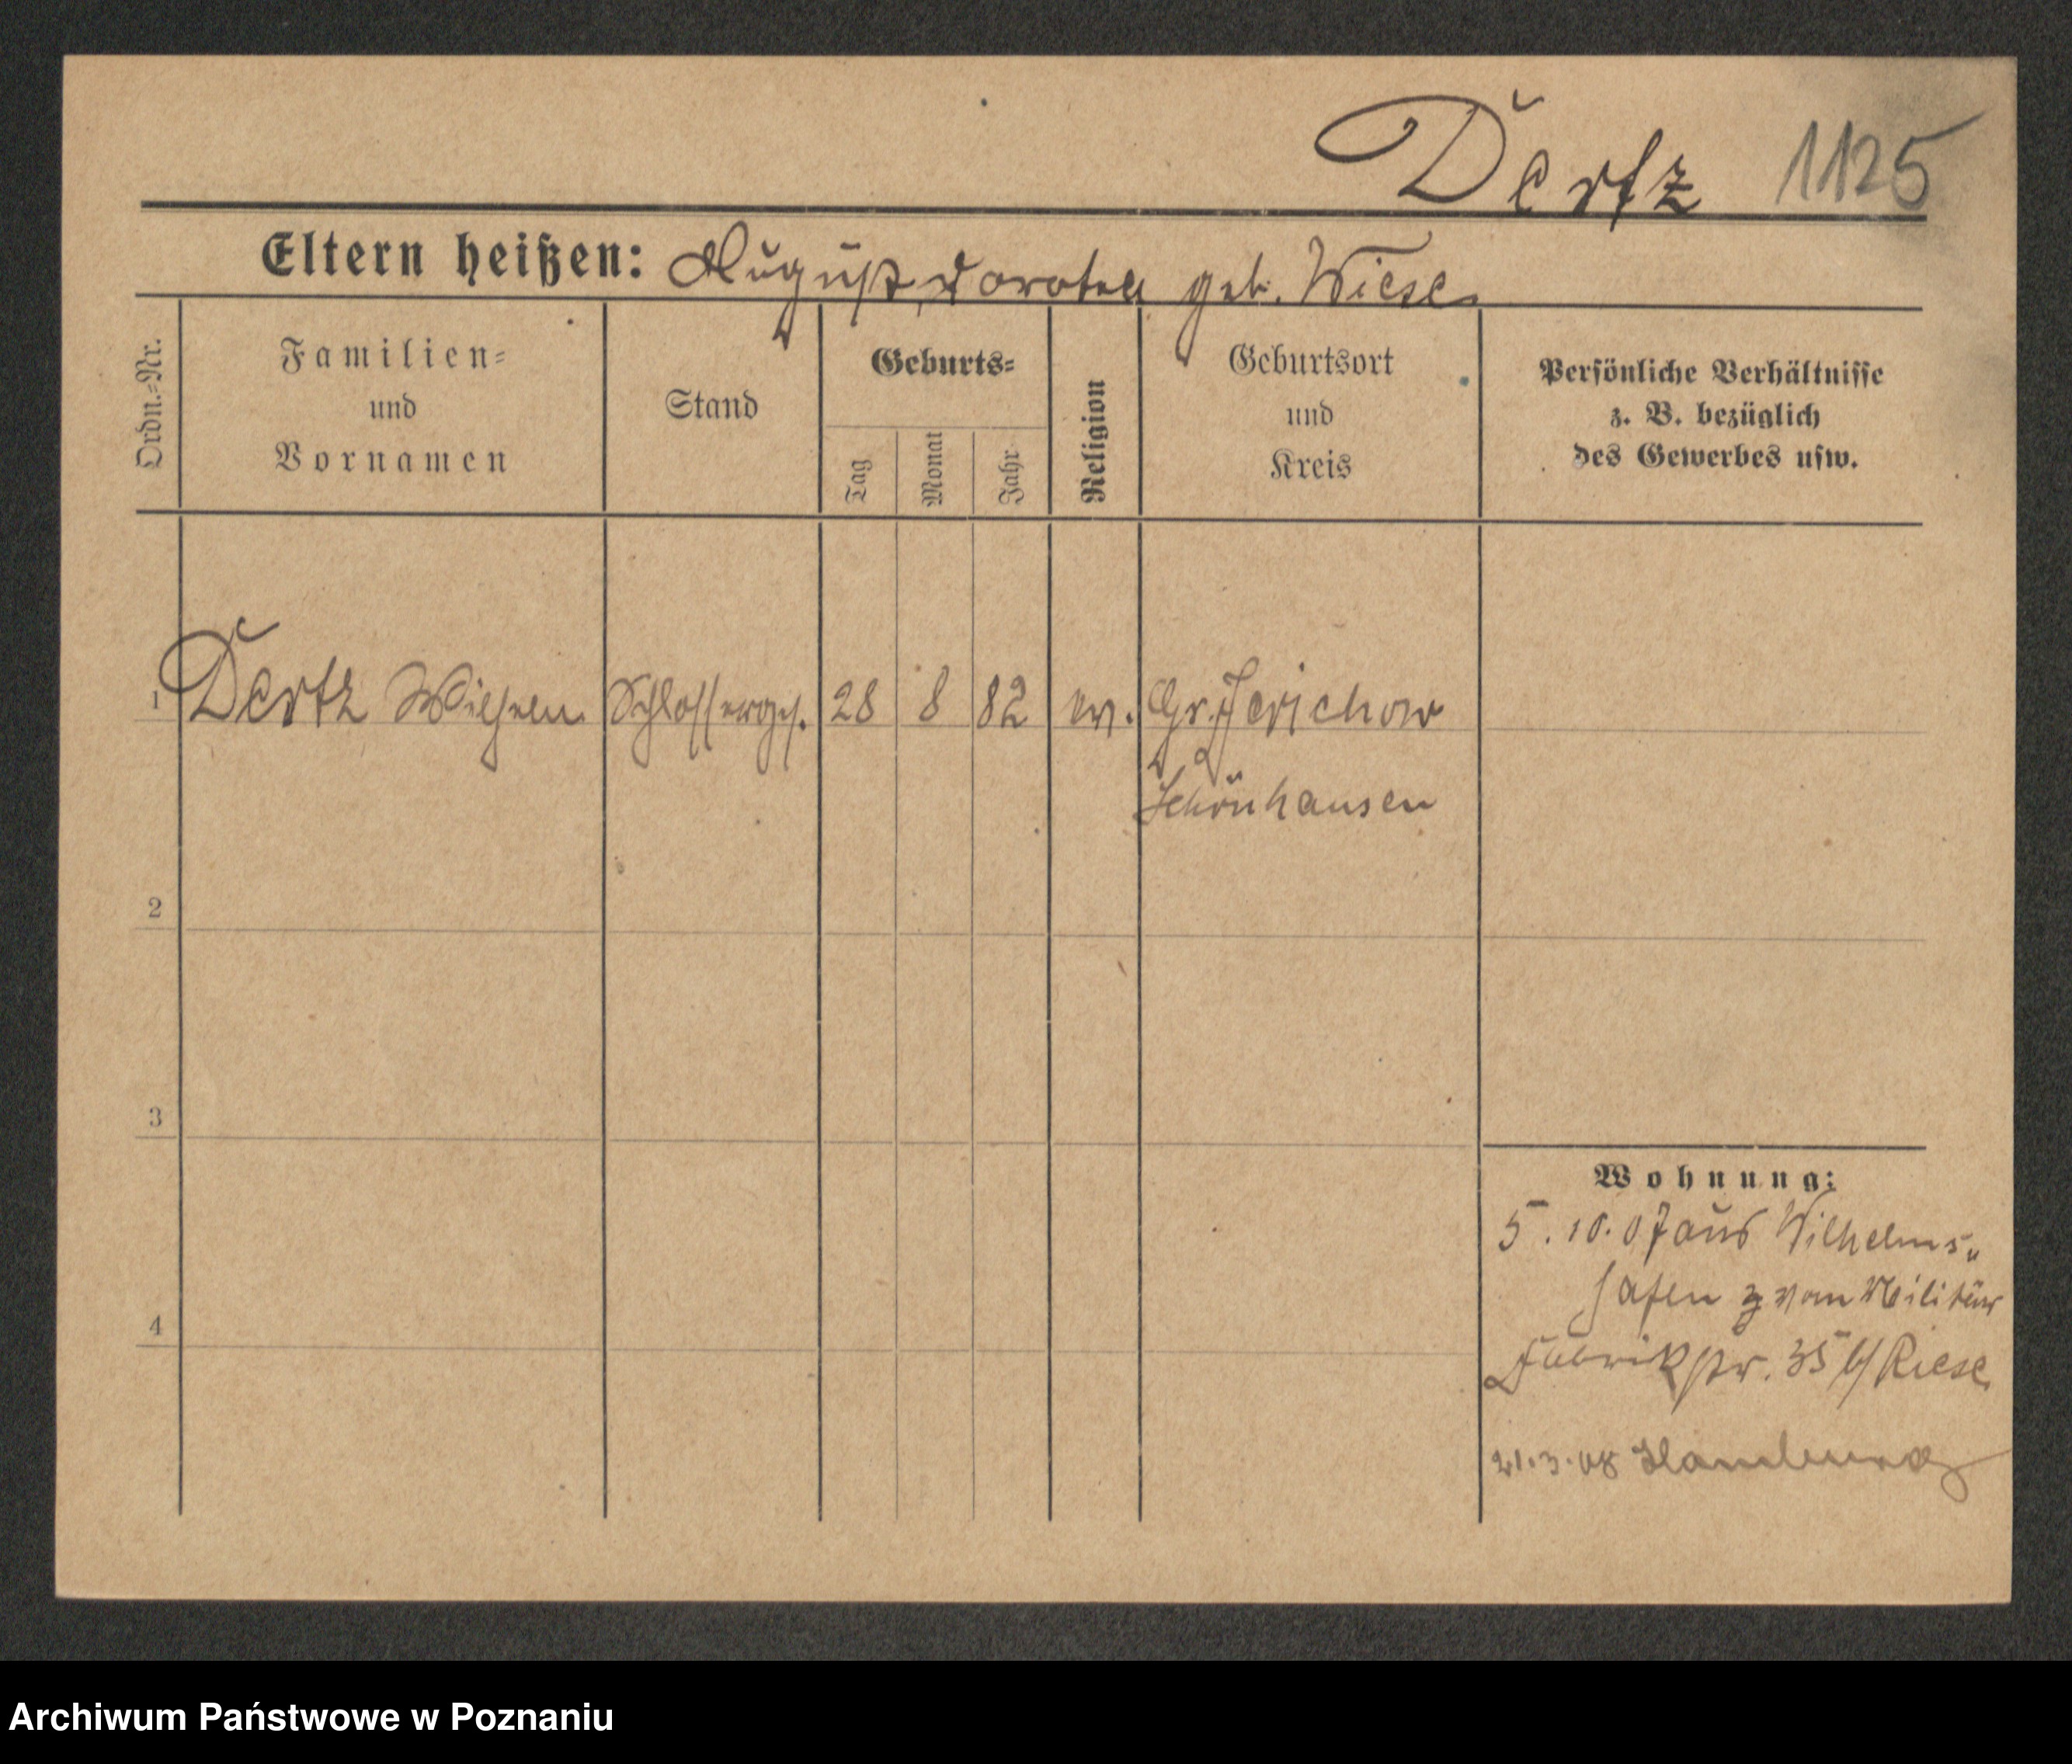 Dertz 1125
Eltern heißen: August, Dorotea geb. Wiese
Ordn.-Nr.
Familien-
und
Vornamen
Stand
Geburts-
Tag
Monat
Jahr
Religion
Geburtsort
und
Kreis
Persönliche Verhältnisse
z. B. bezüglich
des Gewerbes usw.
1 Dertz Wilhelm Schlosserges. 28 8 82 ev. Gr. Jerichow
Schönhausen
2
3
4
Wohnung:
5. 10. 07 aus Wilhelms-
hafen vom Militär
Fabrikstr. 35 b/ Riese
21. 3. 08 Hamburg
Archiwum Państwowe w Poznaniu